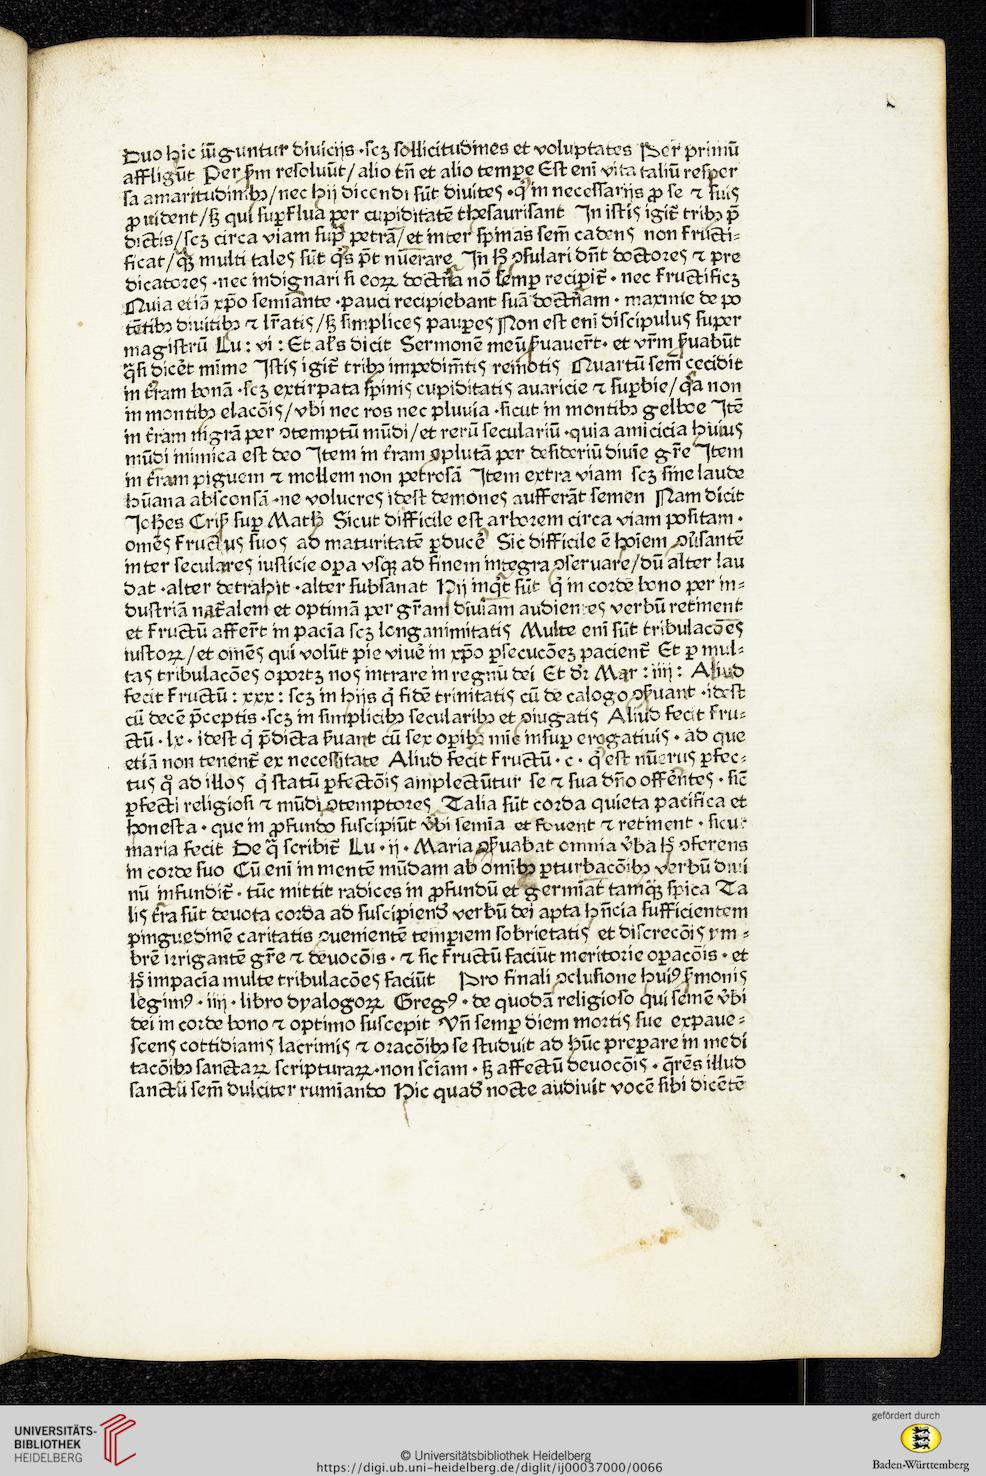 Duo hic iūguntur diuicijs ·scꝫ sollicitudines et voluptates Per primū
affligūt Per ẜm resoluūt/alio tn̄ et alio tempe Est enī vita taliū resper
sa amaritudinibꝫ/nec hij dicendi sūt diuites ·q̇ in necessarijs ꝓ se ⁊ suis
ꝓuident/sꝫ qui suꝑflua per cupiditatē thesaurisant In istis igit̄ tribꝫ p̄
dictis/scꝫ circa viam suꝑ petrā/et inter spinas sem̄ cadens non fructi⸗
ficat/qꝫ multi tales sūt q̇s pn̄t nūerare In hꝫ ꝯsulari dn̄t doctores ⁊ pre
dicatores ·nec indignari si eoꝝ doctn̄a nō semꝑ recipit̄ · nec fructificꝫ
Quia etiā xp̄o semiāante ·pauci recipiebant suā doctn̄am · maxime de po
tētibꝫ diuitibꝫ ⁊ lr̄atis/sꝫ simplices pauꝑes Non est enī discipulus super
magistrū Lu : vi : Et al's dicit Sermonē meū ẜuauert̄ · et vr̄m ẜuabūt
q̄si dicēt mīme Istis igit̄ tribꝫ impedim̄tis remotis Quartū sem̄ cecidit
in tr̄am bonā ·scꝫ extirpata spinis cupiditatis auaricie ⁊ suꝑbie/q̄a non
in montibꝫ elacōis/vbi nec ros nec pluuia ·sicut in montibꝫ gelboe Itē
in tr̄am nigrā per ꝯtemptū mūdi/et rerū seculariū ·quia amicicia huius
mūdi inimica est deo Item in tr̄am ꝯplutā per desideriū diuīe gr̄e Item
in tr̄am piguem ⁊ mollem non petrosā Item extra viam scꝫ sine laude
hūana absconsā ·ne volucres idest demones aufferāt semen Nam dicit
Joh̄es Cris̄ suꝑ Math̄ Sicut difficile est arborem circa viam positam ·
omēs fructus suos ad maturitatē ꝑducē Sic difficile ē hoīem ꝯu̇santē
inter seculares iusticie oꝑa vsqꝫ ad finem integra ꝯseruare/dū alter lau
dat ·alter detrahit ·alter subsanat Hij inq̄t sūt q̇ in corde bono per in⸗
dustriā nat̄alem et optimā per gr̄am diuiam audientes verbū retinent
et fructū affert̄ in pacīa scꝫ longanimitatis Multe enī sūt tribulacōes
iustoꝝ/et omēs qui volūt pie viuē in xp̄o ꝑsecucōeꝫ pacient̄ Et ꝑ mul⸗
tas tribulacōes oportꝫ nos intrare in regnū dei Et dr̄ Mar : iiij : Aliud
fecit fructū : xxx : scꝫ in hijs q̇ fidē trinitatis cū de calogo ꝯẜuant ·idest
cū decē p̄ceptis ·scꝫ in simplicibꝫ secularibꝫ et ꝯiugatis Aliud fecit fru⸗
ctū · lx · idest q̇ p̄dicta ẜuant cū sex oꝑibꝫ mīe insuꝑ erogatiuis · ad que
etiā non tenent̄ ex necessitate Aliud fecit fructū · c · q̇ est nūerus ꝑfec⸗
tus q̇ ad illos q̇ statū ꝑfectōis amplectūtur se ⁊ sua dn̄o offēntes · sic̄
ꝑfecti religiosi ⁊ mūdi ꝯtemptores Talia sūt corda quieta pacifica et
honesta · que in ꝓfundo suscipiūt v̇bi semīa et fouent ⁊ retinent · sicut
maria fecit De q̄ scribit̄ Lu · ij · Maria ꝯẜuabat omnia v̇ba hꝫ ꝯferens
in corde suo Cū enī in mentē mūdam ab omībꝫ ꝑturbacōibꝫ verbū diui
nū infundit̄ · tūc mittit radices in ꝓfundū et germiat̄ tamqꝫ spica Ta
lis tr̄a sūt deuota corda ad suscipiend̄ verbū dei apta hn̄cia sufficientem
pinguedinē caritatis ꝯuenientē temꝑiem sobrietatis et discrecōis ym⸗
brē irrigantē gr̄e ⁊ deuocōis · ⁊ sic fructū faciūt meritorie oꝑacōis · et
hꝫ in pacīa multe tribulacōes faciūt Pro finali ꝯclusione huiꝰ ẜmonis
legimꝰ · iiij · libro dyalogoꝝ Gregꝰ · de quodā religioso qui semē v̇bi
dei in corde bono ⁊ optimo suscepit Vn̄ semꝑ diem mortis sue expaue⸗
scens cottidianis lacrimis ⁊ oracōibꝫ se studuit ad hūc preꝑare in medi
tacōibꝫ sanctaꝝ scripturaꝝ ·non sciam · sꝫ affectū deuocōis · q̄rēs illud
sanctū sem̄ dulciter rumīando Hic quad̄ nocte audiuit vocē sibi dicētē
UNIVERSITÄTS-
BIBLIOTHEK
HEIDELBERG
gefördert durch
Baden-Württemberg
© Universitätsbibliothek Heidelberg
https://digi.ub.uni-heidelberg.de/diglit/ij00037000/0066